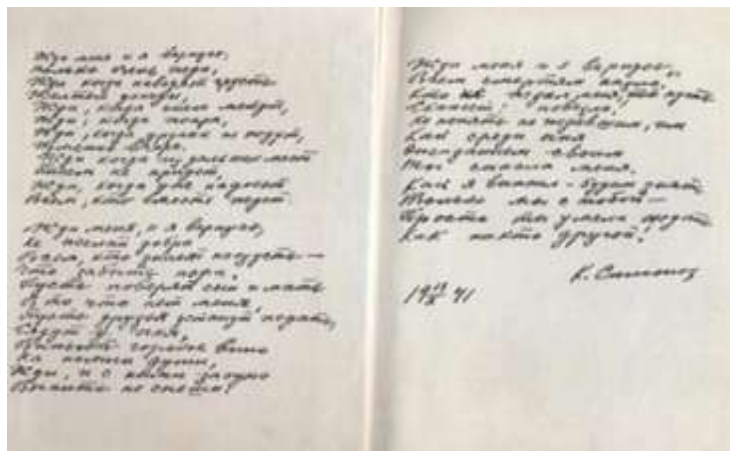 Жди меня и я вернусь,
Только очень жди,
Жди когда наводят грусть
Желтые дожди,
Жди, когда снега метут,
Жди, когда жара,
Жди, когда других не ждут,
Изменив вчера.
Жди когда из дальних мест
Писем не придет,
Жди, когда уж надоест
Всем, кто вместе ждет.
Жди меня, и я вернусь,
Не желай добра
Всем, кто знает наизусть —
Что забыть пора.
Пусть поверят сын и мать
В то что нет меня,
Пусть друзья устанут ждать,
Сядут у огня,
Выпьют горькое вино
На помин души,
Жди, и с ними заодно
Выпить не спеши!
Жди меня и я вернусь,
Всем смертям назло,
Кто не ждал меня, тот пусть
Скажет: повезло,
Не понять не ждавшим, им
Как среди огня
Ожиданием своим
Ты спасла меня.
Как я выжил - будем знать
Только мы с тобой —
Просто ты умела ждать
Как никто другой!
К. Симонов
41